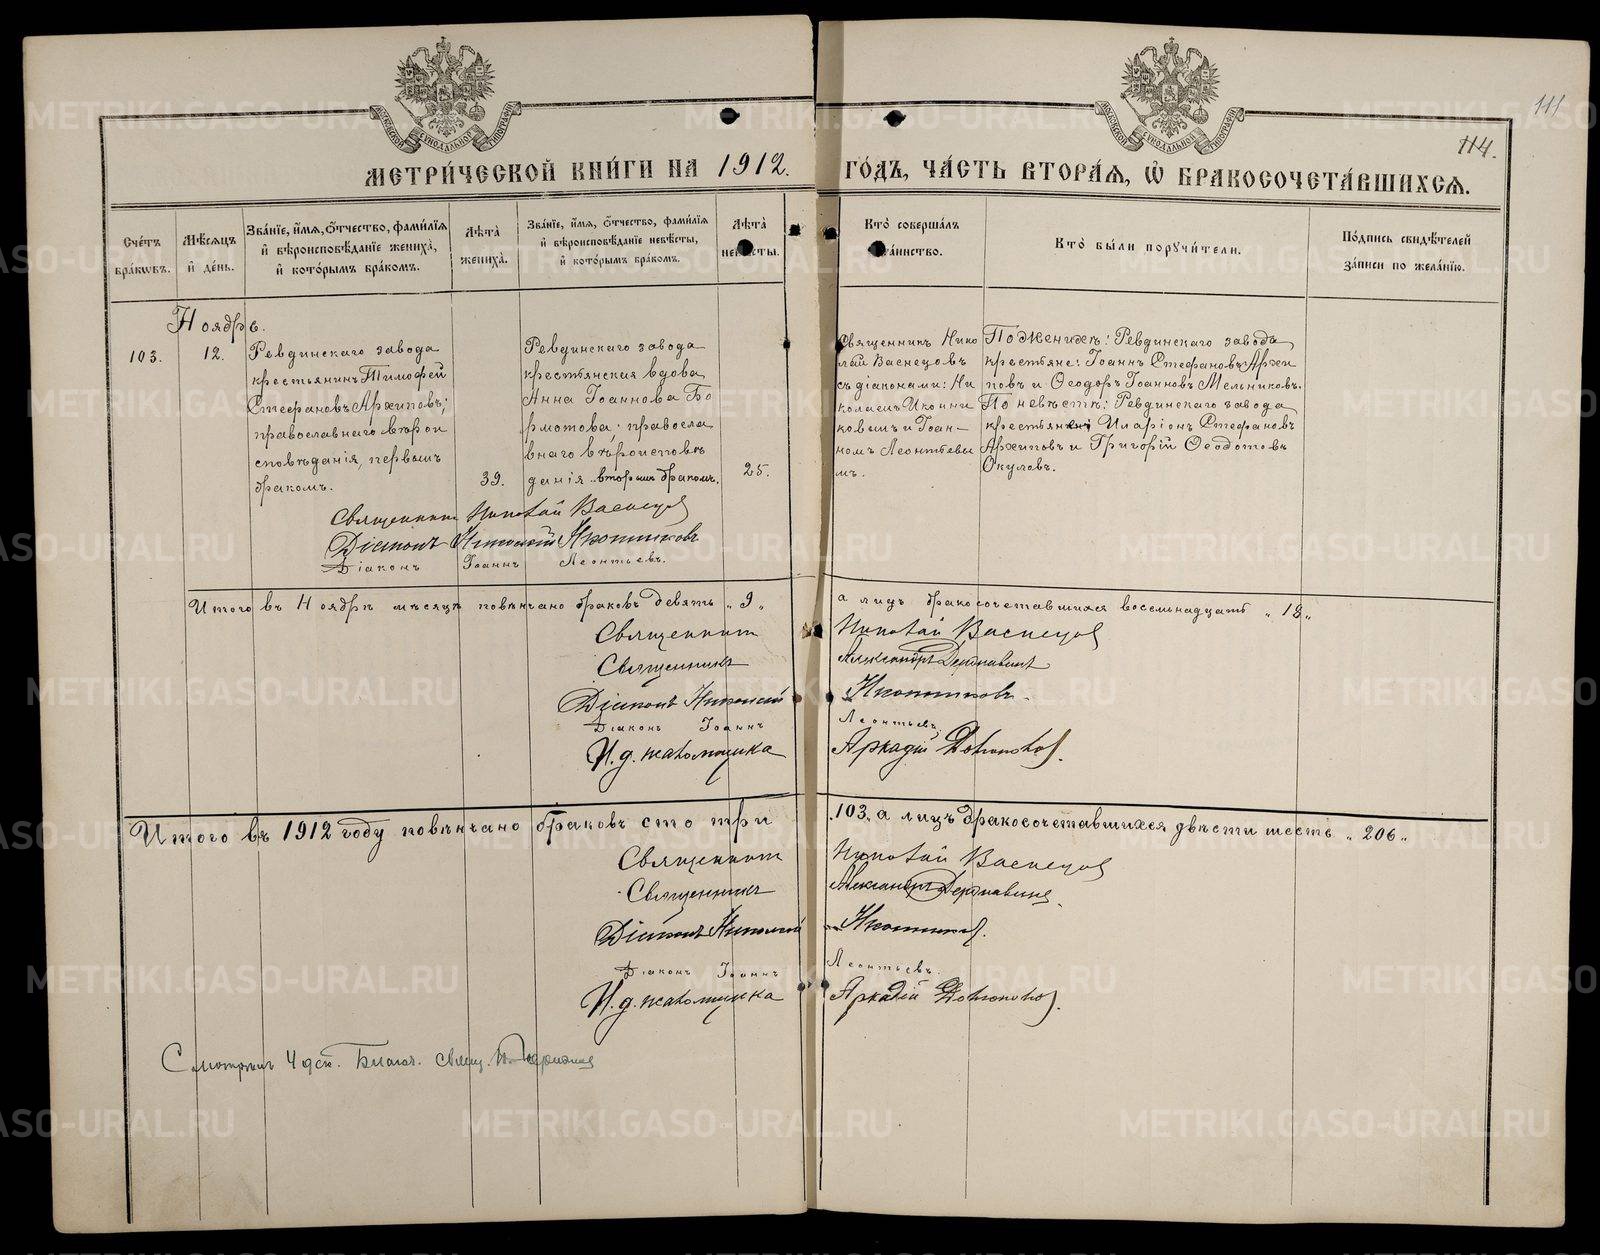 111
114.
МОСКОВСКОЙ СѴНОДАЛЬНОЙ ТИПОГРАФІИ
МОСКОВСКОЙ СѴНОДАЛЬНОЙ ТИПОГРАФІИ
МЕТРИ́ЧЕСКОЙ КНИ́ГИ НА 1912. ГО́ДЪ, ЧА́СТЬ ВТОРА́Я, Ѽ БРАКОСОЧЕТА́ВШИХСЯ.
Сче́тъ бра́кѡвъ.
Мѣ́сяцъ и҆ де́нь.
Зва́нїе, и҆́мя, ѻ҆́тчество, фами́лїя и҆ вѣроисповѣ́данїе жениха̀, и҆ кото́рымъ бра́комъ.
Лѣ́та жениха̀.
Зва́нїе, и҆́мя, ѻ҆́тчество, фами́лїя и҆ вѣроисповѣ́данїе невѣ́сты, и҆ кото́рымъ бра́комъ.
Лѣ́та невѣ́сты.
Кто̀ соверша́лъ та́инство.
Кто̀ бы́ли порꙋчи́тели.
По́дпись свидѣ́телей за́писи по жела́нїю.
Ноябрь.
103.
12.
Ревдинскаго завода
крестьянинъ Тимофей
Стефановъ Архиповъ;
православнаго вѣрои
сповѣданія, первымъ
бракомъ.
39.
Ревдинскаго завода
крестьянская вдова
Анна Іоаннова Бо
рмотова; правосла
внаго вѣроисповѣ
данія вторымъ бракомъ.
25.
Священникъ Нико
лай Васнецовъ
съ діаконами: Ни
колаемъ Иконни
ковымъ и Іоан–
номъ Леонтьевы
мъ.
По женихѣ: Ревдинскаго завода
крестьяне: Іоаннъ Стефановъ Архи
повъ и Ѳеодоръ Іоанновъ Мельниковъ.
По невѣстѣ: Ревдинскаго завода
крестьяне: Иларіонъ Стефановъ
Архиповъ и Григорій Ѳеодотовъ
Окуловъ.
Священникъ Николай Васнецов
Діаконъ Николай Иконниковъ
Діаконъ Іоаннъ Леонтьевъ.
Итого въ Ноябрѣ мѣсяцѣ повѣнчано браковъ девять „9„ а лицъ бракосочетавшихся восемьнадцать „18„
Священникъ Николай Васнецов
Священникъ Александръ Державинъ
Діаконъ Николай Иконниковъ.
Діаконъ Іоаннъ Леонтьевъ
И.д. псаломщика Аркадій
Итого въ 1912 году повѣнчано браковъ сто три 103, а лицъ бракосочетавшихся двѣсти шесть „206„
Священникъ Николай Васнецов
Священникъ Александръ Державинъ.
Діаконъ Николай Иконников.
Діаконъ Іоаннъ Леонтьевъ.
И.д. псаломщика Аркадій
Смотрѣлъ 4 дек. Благоч. свящ.
METRIKI.GASO-URAL.RU